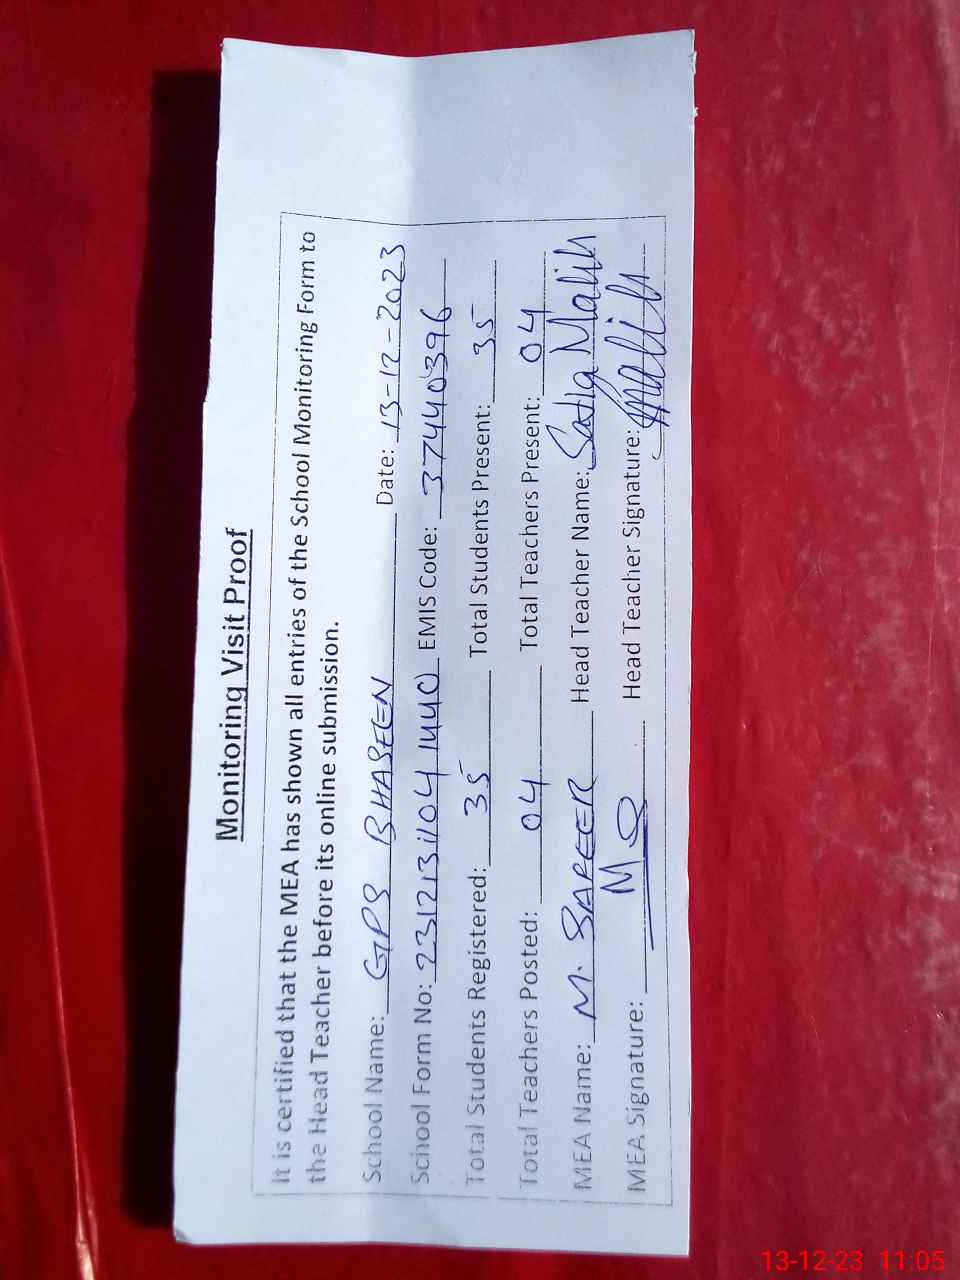 Monitoring Visit Proof
It is certified that the MEA has shown all entries of the School Monitoring Form to
the Head Teacher before its online submission.
School Name: GPS BHASEEN Date: 13-12-2023
School Form No: 23121311041440 EMIS Code: 37440396
Total Students Registered: 35 Total Students Present: 35
Total Teachers Posted: 04 Total Teachers Present: 04
MEA Name: M. Head Teacher Name: Malik
MEA Signature: Head Teacher Signature:
13-12-23 11:05